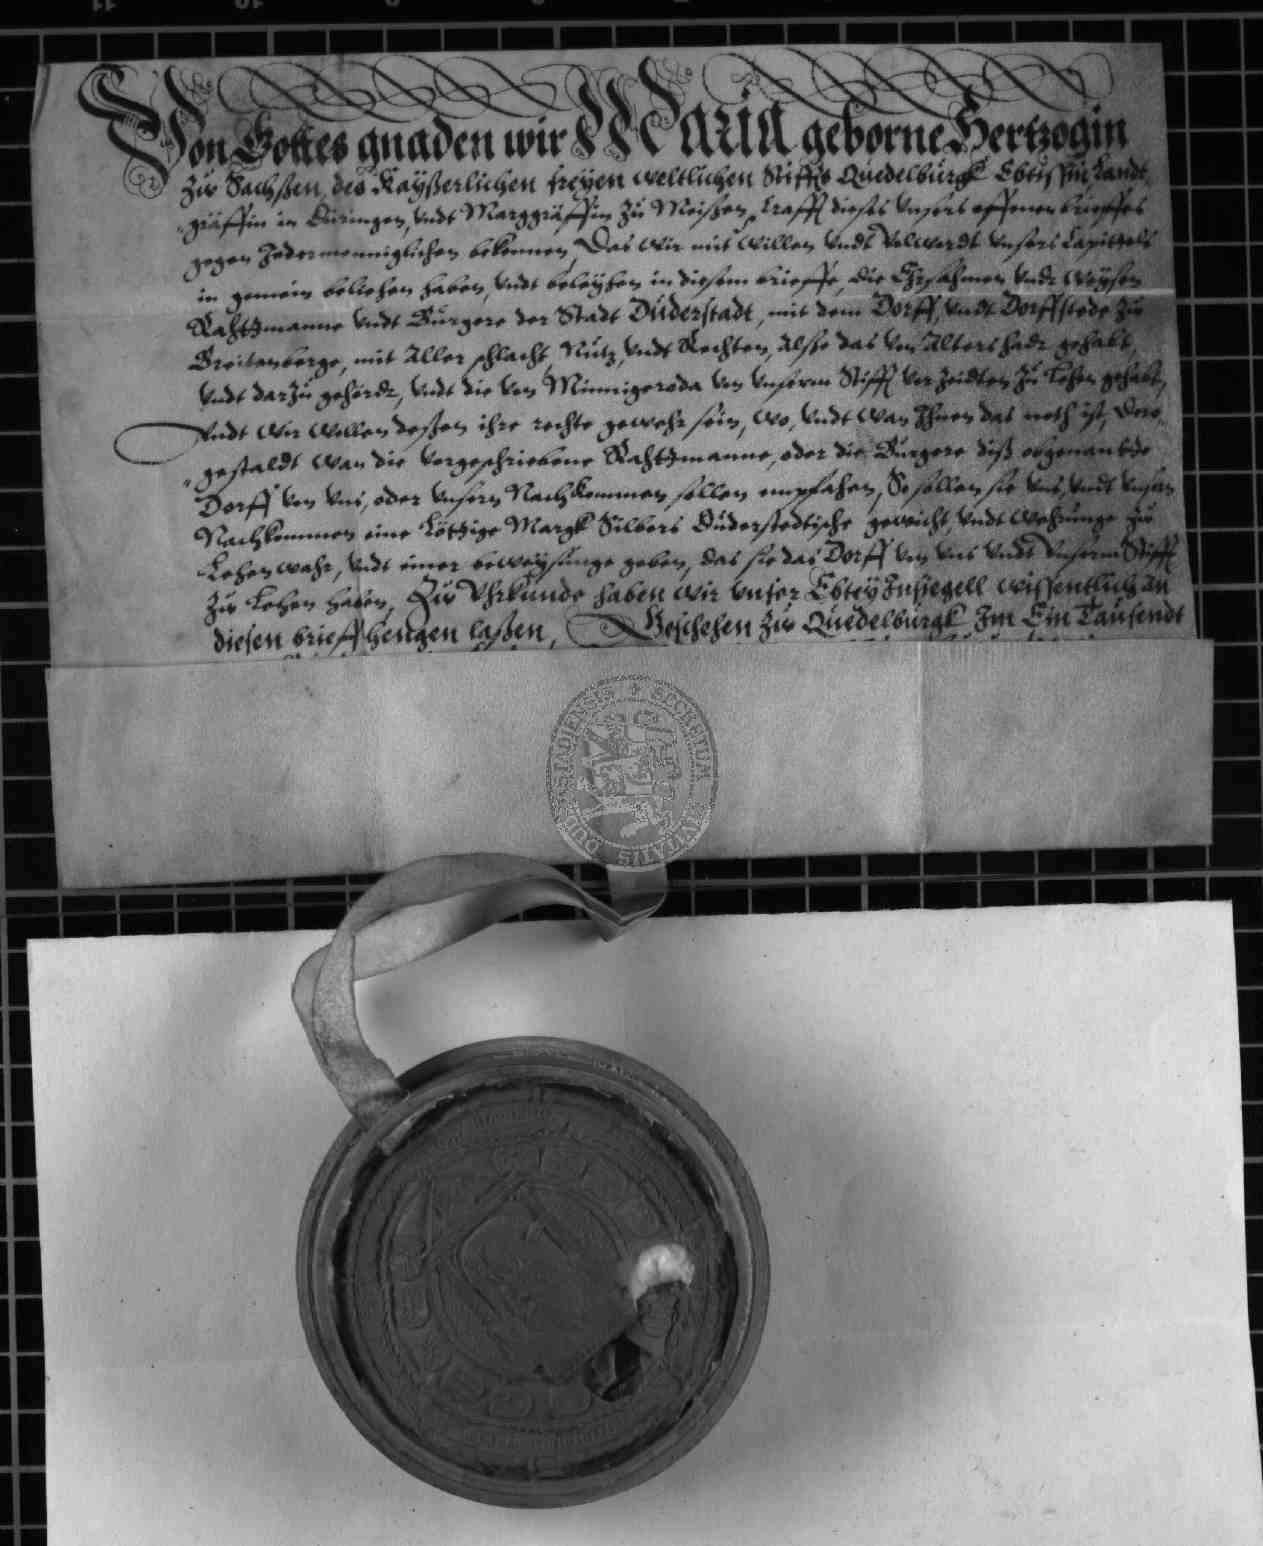 Von Gottes gnaden wir Maria geborne Hertzogin
Zur Sachßen, des Kayßerlichen freyen weltlichen Stiffts Quedelburgk Ebtissin, Landt-
gräffin in Düringen, undt Marggräffin zu Meißen, Krafft dieses unsers offenen brieffes
gegen Jedermenniglichen bekennen, Das wir mit willen undt volwordt unsers Capittels
in gemein beliehen haben, undt beleyhen in diesem brieffe, die Ehrsahmen undt weysen
Rahtsmanne undt Burgere der Stadt Duderstadt, mit dem Dorff, undt Dorffstede zu
Breitenberge, mit aller schlacht, Nutz, undt Rechten, alsse das von alters hadt gehabt,
undt darzu gehördt, undt die von Minnigeroda von unserm Stifft vor Zeidten zu Lehen gehabt,
undt wir wollen deßen ihre rechte gewehr sein, wo, undt wan Ihnen das noth ist, Dero-
gestaldt wan die vorgeschriebene Rahtsmanne, oder die Burgere diß obgenantte
Dorff von uns, oder unsern Nachkommen sollen empfahen, So sollen sie uns, undt unsern
Nachkommen eine Lötzige Margk Silbers Duderstedtische gewicht, undt wehrunge zur
Lehenwahr, undt einer beweysunge geben, das sie das Dorff von uns undt unserm Stifft
zur Lehen haben, Zur Uhrkunde haben wir unser Ebtey Insiegell wissentlich an
diesen brieff hengen laßen, Geschehen zur Quedelburgk Im Ein Tausendt
SECRETUM CIVITATIS DUDERSTADIENSIS